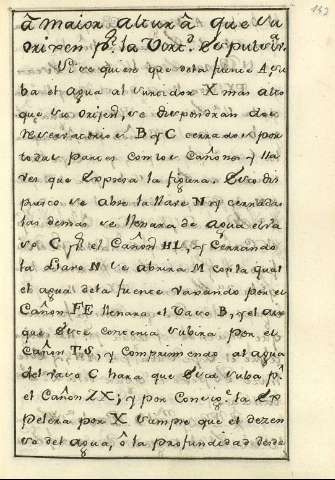 142
â maior altura que su
origen pr. la Vent.ª Espulsiva
Vd. se quiere que dela fuente A su
ba el agua al surcidor X mas alto
que su origen, se dispondran dos
reservatorios B, y C cerrados por
todas partes con los Cañones, y lla
ves que Expresa la figura. Esto dis
puesto se abre la llave N, y cerradas
las demas se llenara de agua el va
so C, pr el Cañon HI, y Cerrando
la llave N se abrira M con la qual
el agua dela fuente vajando por el
Cañon FE llenara el Vaso B, y el aire
que Este contenia subira por el
Cañon TS, y Comprimiendo al agua
del vaso C hara que Esta suba pr.
el Cañon ZX; y por Consig.te la Ex
pelera por X siempre que el dezen
so del agua, ô la profundidad desde